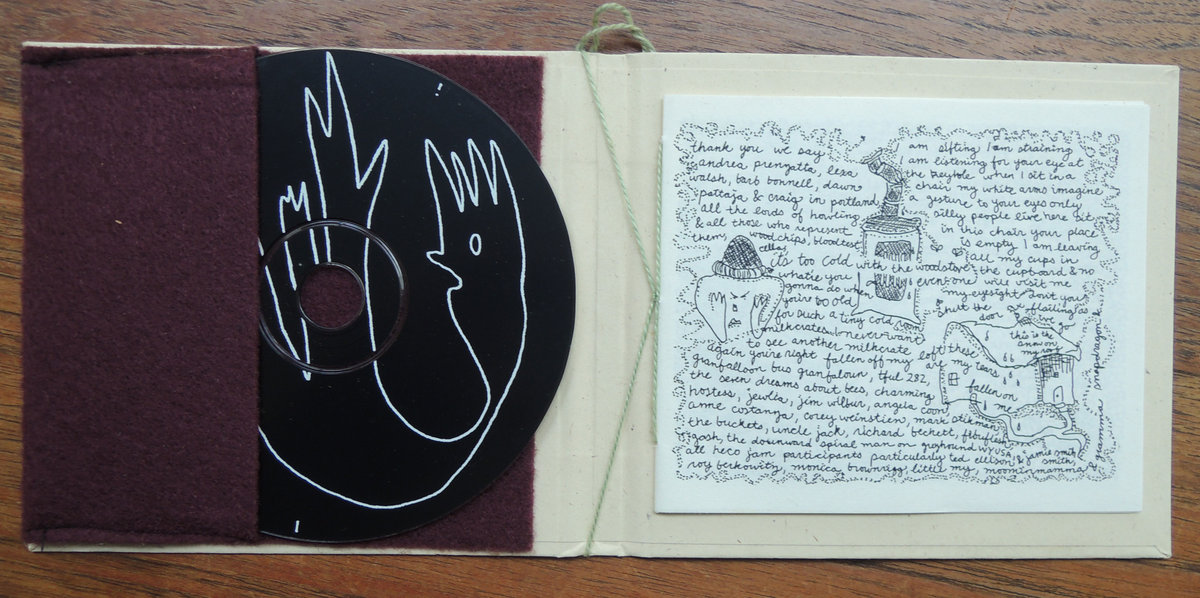 thank you we say
andrea prenzatta, lexa
walsh, barb bonnell, dawn
pattaja & craig in portland
all the eords of howling
& all those who represent
them, woodchips, bloodtest
cella,
am sifting I am straining
I am listening for your eye at
the keyhole when I sit in a
chair my white arms imagine
a gesture to your eyes only
silly people live here sit
in this chair your place
is empty I am leaving
all my cups in
the cupboard & no
even one will visit me
my eyesight
shut the
door
flailing as
we go
its too cold with the woodstove
whatre you
gonna do when
you're too old
for such a tiny cold room
milkcrates I never want
to see another milkcrate
again you're right fallen off my
left these
are my tears
fallen on
me
this is the
snow on
my
granfalloon bus granfaloun, tful 282,
the seven dreams about bees, charming
hostess, jewlia, jim wilbur, angela coon,
anne costanza, corey weinstien, mark stikman
the buckets, uncle jack, richard beckett,
gosh, the downward spiral man on greyhound wv USA,
all heco jam participants particularly ted ellison, & jamie smith
smith,
roy berkowitz, monica brownrigg, little my, moominmamma
& gramma snapdragon